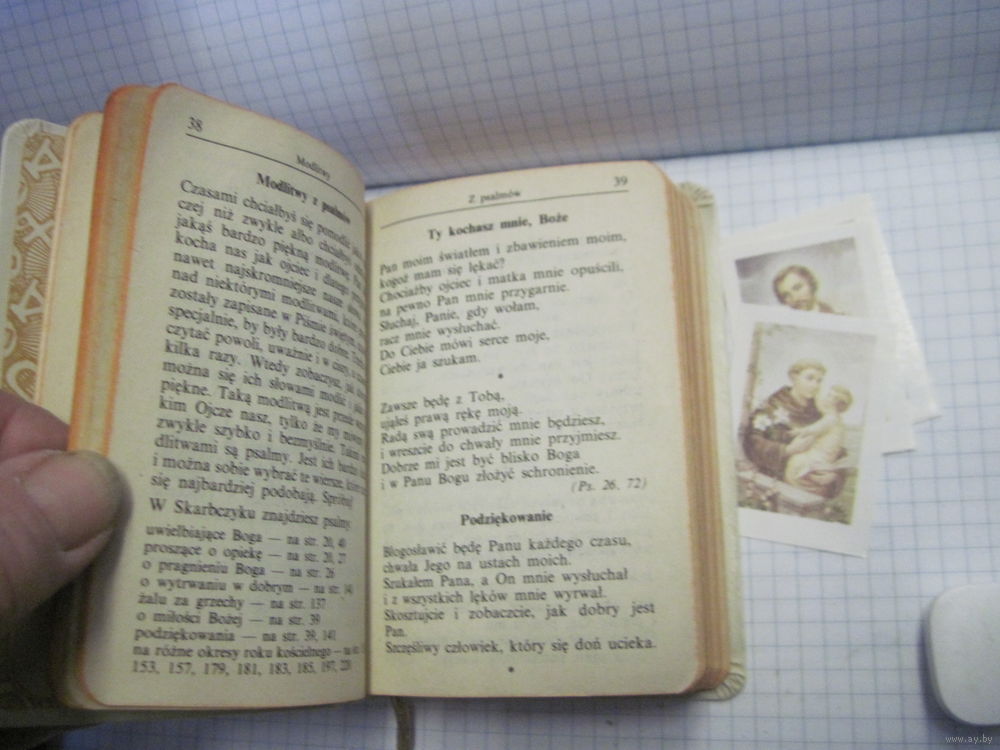 38
Modlitwy
Modlitwy z psalmów
Czasami chciałbyś się pomodlić
czej niż zwykle albo chciałbyś
jakąś bardzo piękną modlitwę.
kocha nas jak ojciec i dlatego
nawet najskromniejsze nasze
nad niektórymi modlitwami,
zostały zapisane w Piśmie świętym,
specjalnie, by były bardzo dobre.
czytać powoli, uważnie i w ciszy,
kilka razy. Wtedy zobaczysz, jak
można się ich słowami modlić i
piękne. Taką modlitwą jest przede
kim Ojcze nasz, tylko że my mówimy
zwykle szybko i bezmyślnie. Takimi
dlitwami są psalmy. Jest ich bardzo
i można sobie wybrać te wiersze, które
się najbardziej podobają. Spróbuj!
W Skarbczyku znajdziesz psalmy:
uwielbiające Boga — na str. 20, 40
proszące o opiekę — na str. 20, 27
o pragnieniu Boga — na str. 26
o wytrwaniu w dobrym — na str.
żalu za grzechy — na str. 137
o miłości Bożej — na str. 39
podziękowania — na str. 39, 141
na różne okresy roku kościelnego — na str.
153, 157, 179, 181, 183, 185, 197,
Z psalmów
39
Ty kochasz mnie, Boże
Pan moim światłem i zbawieniem moim,
kogoż mam się lękać?
Chociażby ojciec i matka mnie opuścili,
na pewno Pan mnie przygarnie.
Słuchaj, Panie, gdy wołam,
racz mnie wysłuchać.
Do Ciebie mówi serce moje,
Ciebie ja szukam.
*
Zawsze będę z Tobą,
ująłeś prawą rękę moją.
Radą swą prowadzić mnie będziesz,
i wreszcie do chwały mnie przyjmiesz.
Dobrze mi jest być blisko Boga
i w Panu Bogu złożyć schronienie.
(Ps. 26, 72)
Podziękowanie
Błogosławić będę Panu każdego czasu,
chwała Jego na ustach moich.
Szukałem Pana, a On mnie wysłuchał
i z wszystkich lęków mnie wyrwał.
Skosztujcie i zobaczcie, jak dobry jest
Pan.
Szczęśliwy człowiek, który się doń ucieka.
*
www.ay.by